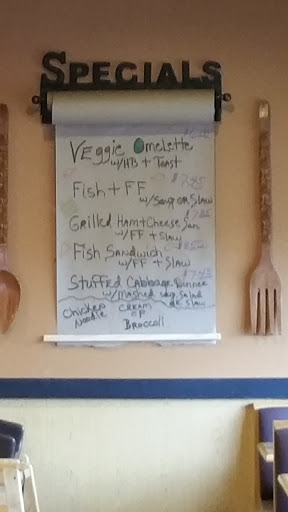 SPECIALS
VEggie Omelette
w/HB + Toast
$7.45
Fish + FF
w/Soup or Slaw
Grilled Ham + Cheese San
w/FF + Slaw
Fish Sandwich
w/FF + Slaw
$7.45
Stuffed Cabbage Dinner
w/Mashed Salad
or Slaw
Chicken Noodle
CREAM OF BROCCOLI